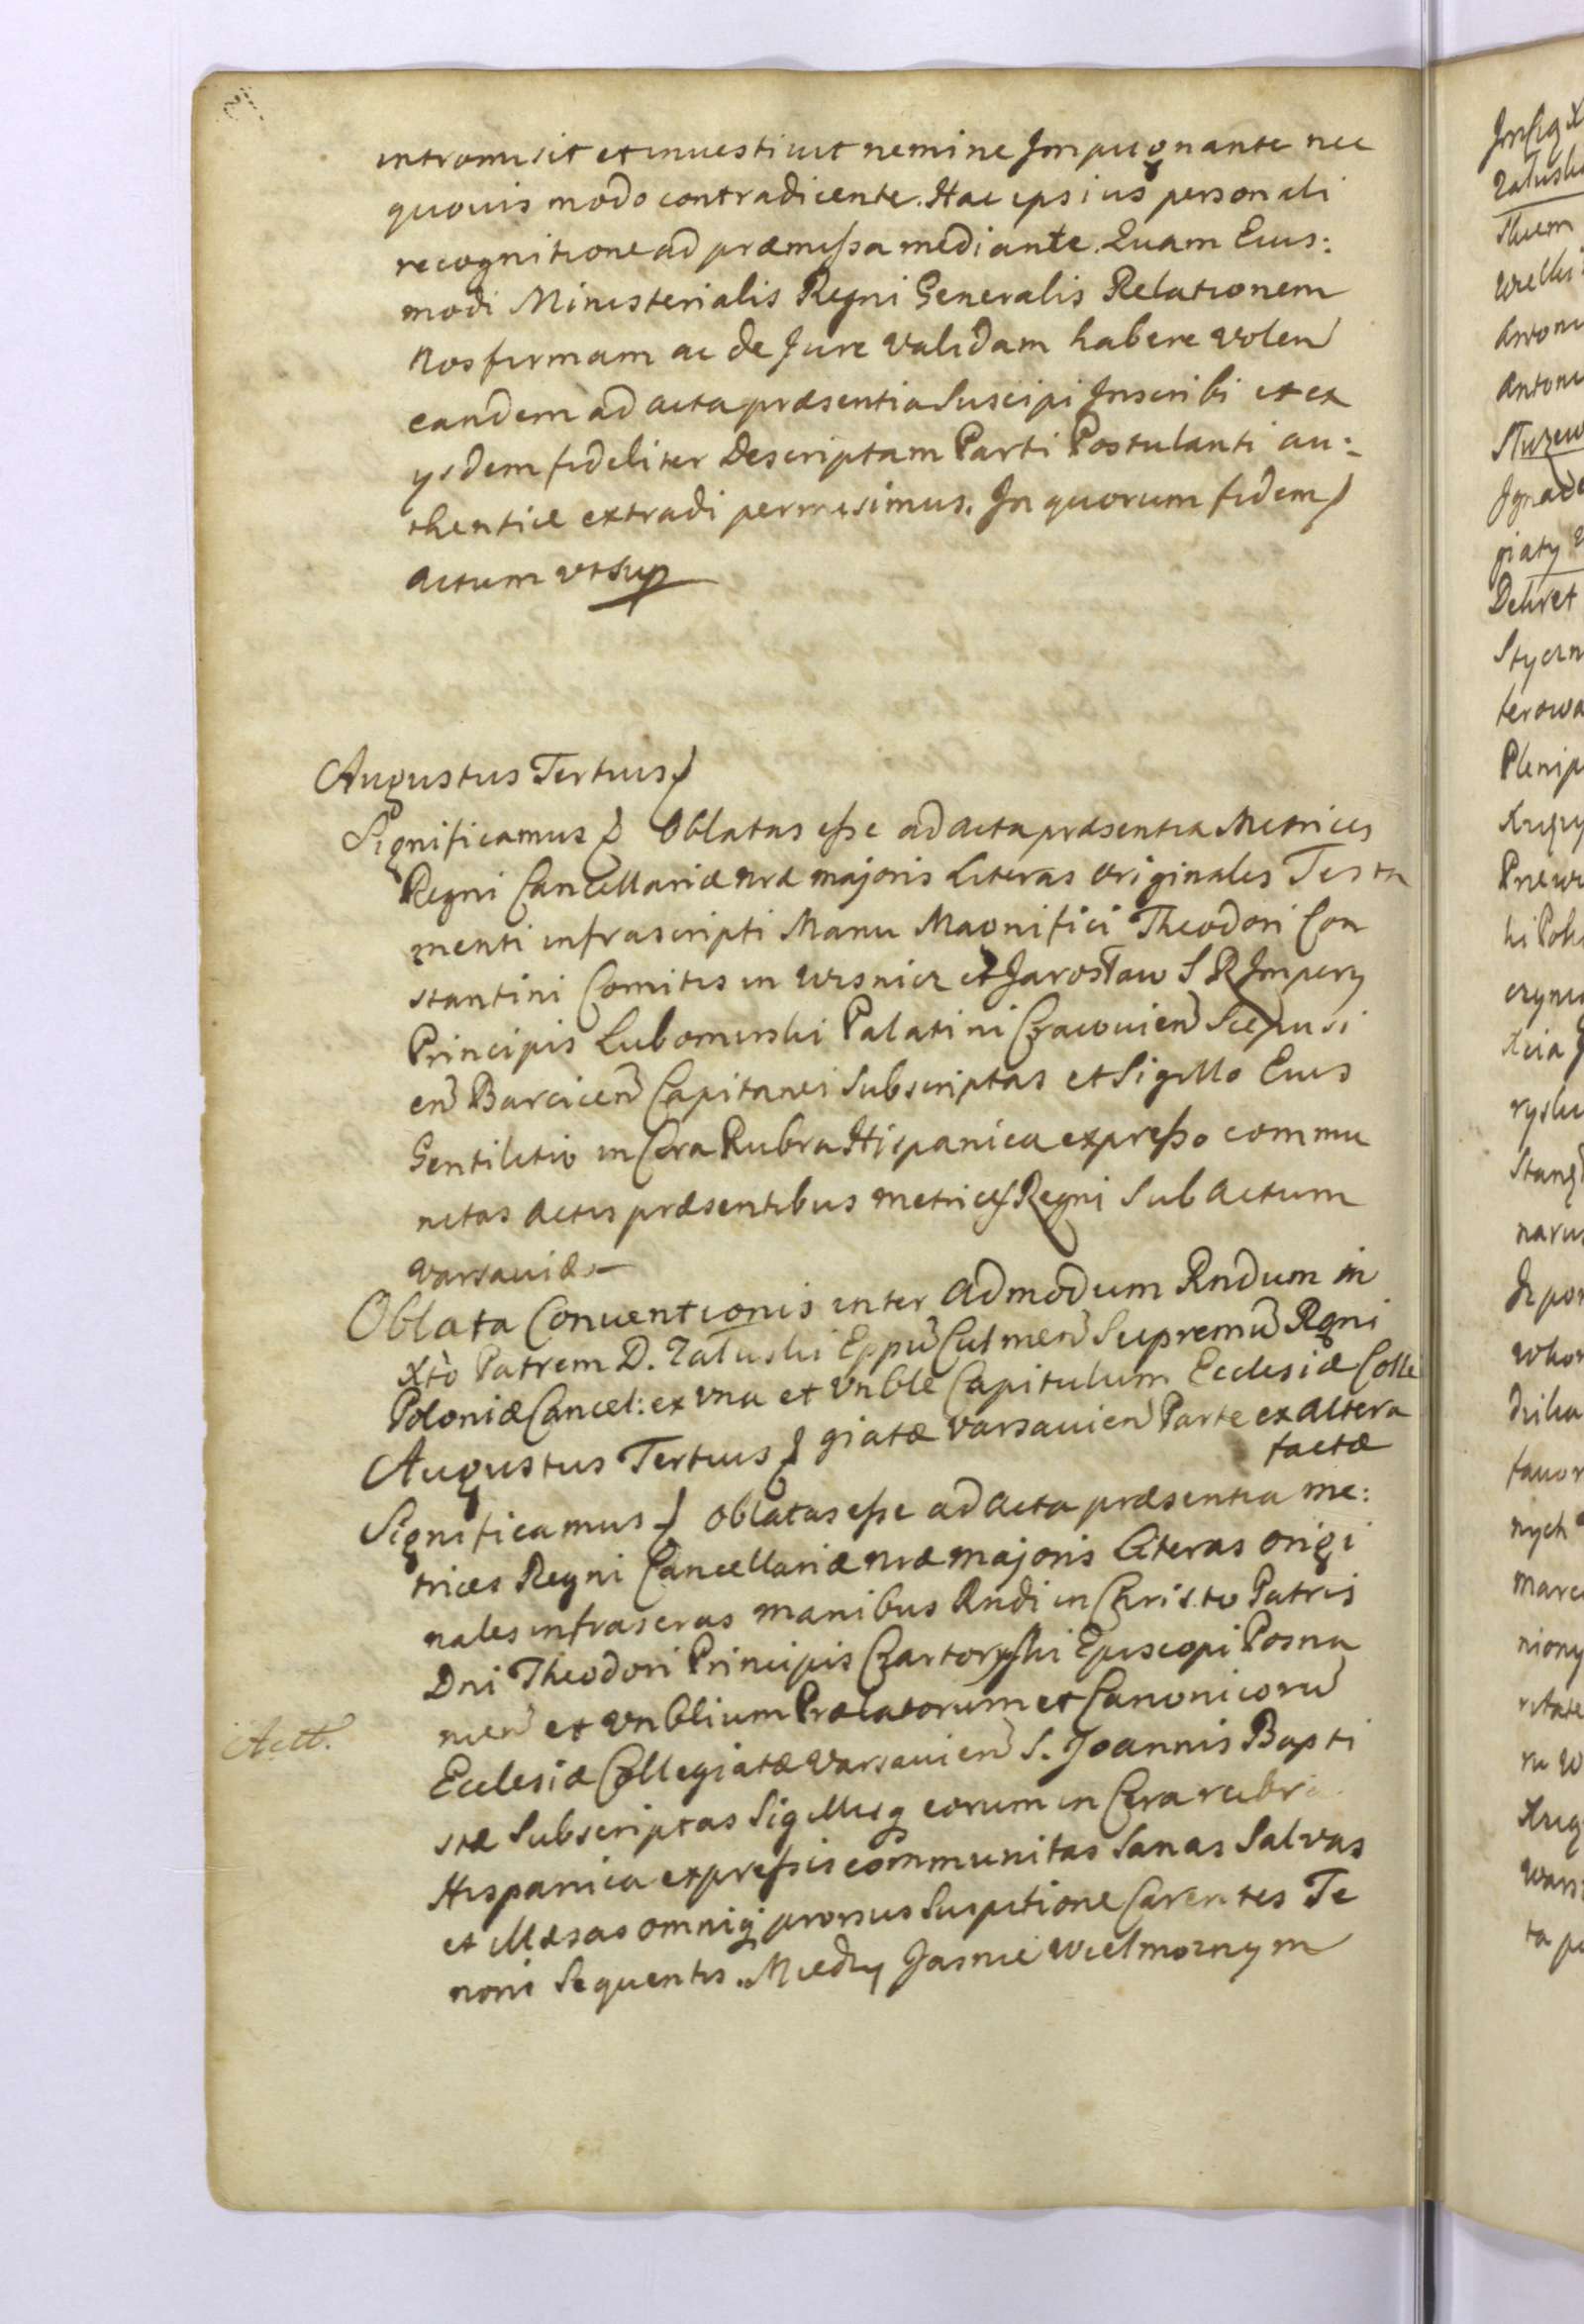 intromisit et inuestiuit nemine Impugnante nec
quouis modo contradicente. Hac ipsius personali
recognitione ad præmissa mediante. Quam Eius:
modi Ministerialis Regni Generalis Relationem
Nos firmam ac de Jure Validam habere volen
eandem ad acta præsentia Suscipi Inscribi et ex
ijsdem fideliter Descriptam Parti Postulanti au:
thentice extradi permisimus. In quorum fidem
actum vt sup
Augustus Tertius
Significamus Oblatas esse ad acta præsentia Metrices
Regni Cancellariæ nræ majoris Literas originales Testa
menti infrascripti Manu Magnifici Theodori Con
stantini Comitis in Wisnicz et Jarosław S R Impery
Principis Lubomirski Palatini Cracouien Scepusi
en Barcicen Capitanei Subscriptas et Sigillo Eius
Gentilitio in Cera Rubra Hispanica expresso commu
nitas actis præsentibus metrices Regni Sub actum
varsauiæ
Oblata Conuentionis inter admodum Rndum in
Xto Patrem D. Załuski Eppu Culmen Supremu Regni
Poloniæ Cancel: ex vna et vnble Capitulum Ecclesiæ Colle
giatæ varsauien Parte ex altera
factæ
Augustus Tertius
Significamus oblatas esse ad acta præsentia me:
trices Regni Cancellariæ nræ majoris Literas origi
nales infrascras manibus Rndi in Christo Patris
Dni Theodori Principis Czartoryski Episcopi Posna
nien et vnblium Prælatorum et Canonicoru
Actt.
Ecclesiæ Collegiatæ varsauien S. Joannis Bapti
stæ Subscriptas Sigillisq eorum in Cera rubra
Hispanica expressis communitas Sanas Salvas
et Illæsas omniq prorsus Suspitione Carentes Te
noris Sequentis. Miedzy Jasnie Wielmoznym